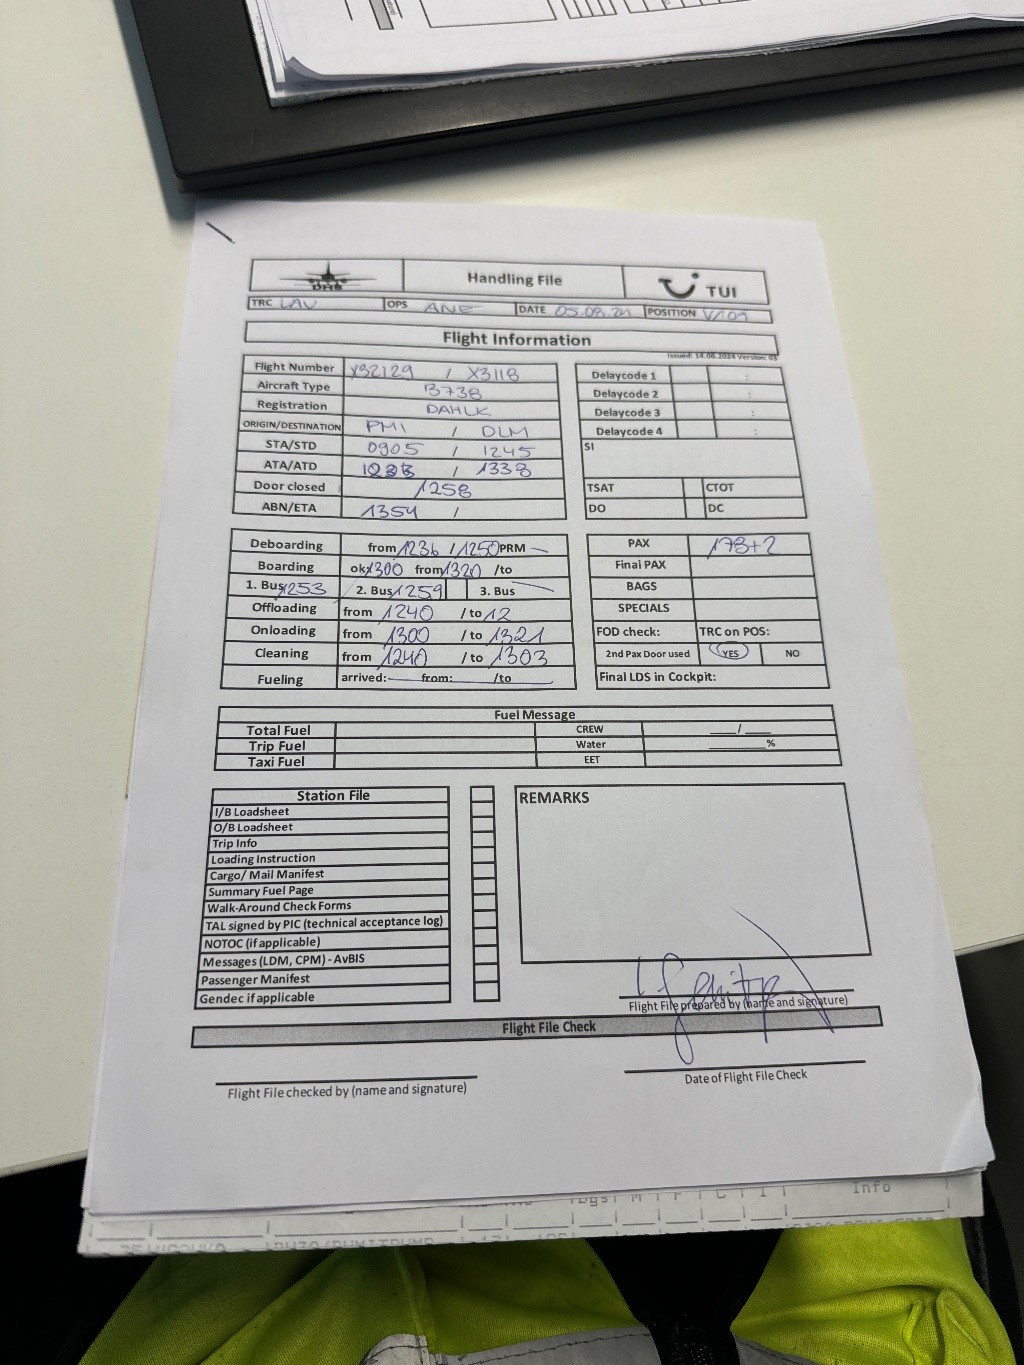 DHS Handling File TUI
TRC LAV OPS ANE DATE 05.09.24 POSITION V109
Flight Information
Issued: 14.06.2024 Version: 03
Flight Number X32129 / X3118
Aircraft Type B738
Registration DAHLK
ORIGIN/DESTINATION PMI / DLM
STA/STD 0905 / 1245
ATA/ATD / 1338
Door closed 1258
ABN/ETA 1354 /
Delaycode 1 :
Delaycode 2 :
Delaycode 3 :
Delaycode 4 :
SI
TSAT CTOT
DO DC
Deboarding from 1236 / 1250 PRM —
Boarding ok 1300 from 1320 /to
1. Bus 1253 2. Bus 1259 3. Bus
Offloading from 1240 / to 12
Onloading from 1300 / to 1321
Cleaning from 1240 / to 1303
Fueling arrived: from: /to
PAX 178+2
Final PAX
BAGS
SPECIALS
FOD check: TRC on POS:
2nd Pax Door used YES NO
Final LDS in Cockpit:
Fuel Message
Total Fuel CREW ___/___
Trip Fuel Water ______%
Taxi Fuel EET
Station File
I/B Loadsheet
O/B Loadsheet
Trip Info
Loading Instruction
Cargo/ Mail Manifest
Summary Fuel Page
Walk-Around Check Forms
TAL signed by PIC (technical acceptance log)
NOTOC (if applicable)
Messages (LDM, CPM) - AvBIS
Passenger Manifest
Gendec if applicable
REMARKS
Flight File prepared by (name and signature)
Flight File Check
Flight File checked by (name and signature)
Date of Flight File Check
Info